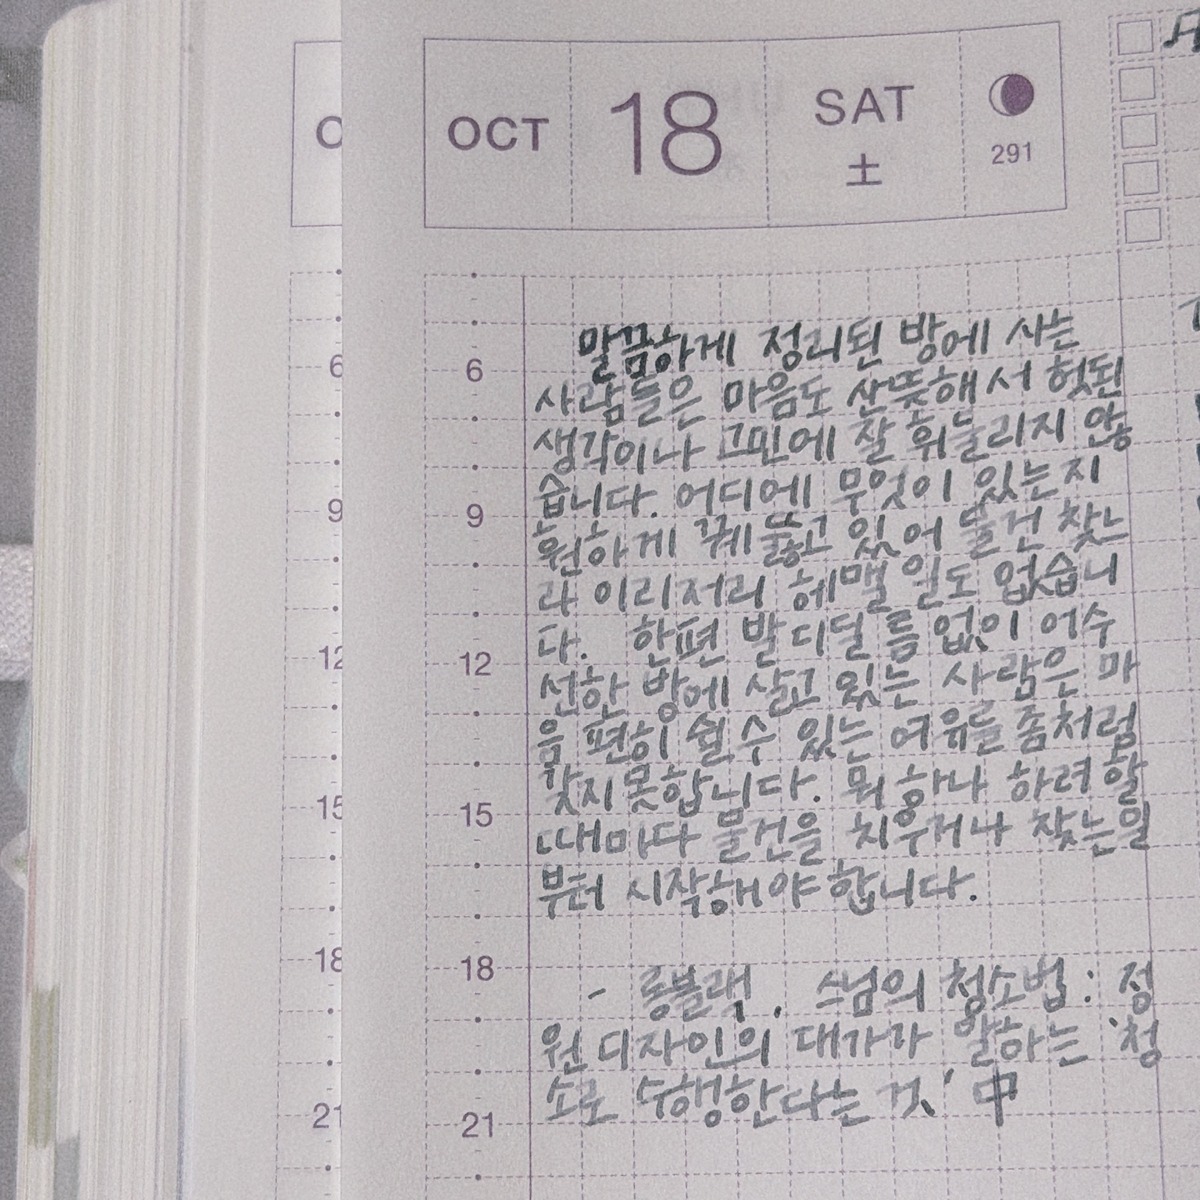 OCT 18 SAT 土 291
말끔하게 정리된 방에 사는
사람들은 마음도 산뜻해서 헛된
생각이나 고민에 잘 휘둘리지 않
습니다. 어디에 무엇이 있는지
훤하게 꿰뚫고 있어 물건 찾느
라 이리저리 헤맬 일도 없습니
다. 한편 발 디딜 틈 없이 어수
선한 방에 살고 있는 사람은 마
음 편히 쉴 수 있는 여유를 좀처럼
갖지 못합니다. 뭐 하나 하려 할
때마다 물건을 치우거나 찾는 일
부터 시작해야 합니다.
- 롱블랙, 스님의 청소법 : 정
원 디자인의 대가가 말하는 '청
소로 수행한다는 것' 中
6
9
12
15
18
21
6
9
12
15
18
21